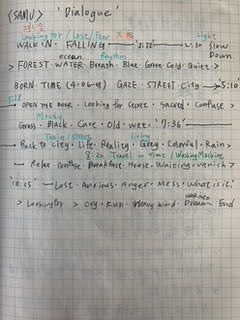 (SAMU) 'Dialogue'
Looking for / Lost / Fear Light
WALK · IN · FALLING '2:22' 2:30 Slow Down
ocean Rhythm
> FOREST · WATER · Breath · Blue · Green · Cold · Quiet >
BORN · TIME (4:06-08) GAZE · STREET · City 5:10
OPEN THE DOOR · Looking for secret · Sacred · Confuse >
Mouldy
Grass · Black · Cave · Old · wet · '7:36'
Train / street living
Back to City · Life · Reality · Grey · Colorful · Rain >
8:20 Travel in time / Washing Machine
Relax · Confuse · Breakfast · House · Waiting · vanish >
'10:55' Lost · Anxious · Anger · Mess · What is it?
waked up
> Looking for > Cry · Run · Heavy wind · Dream · End